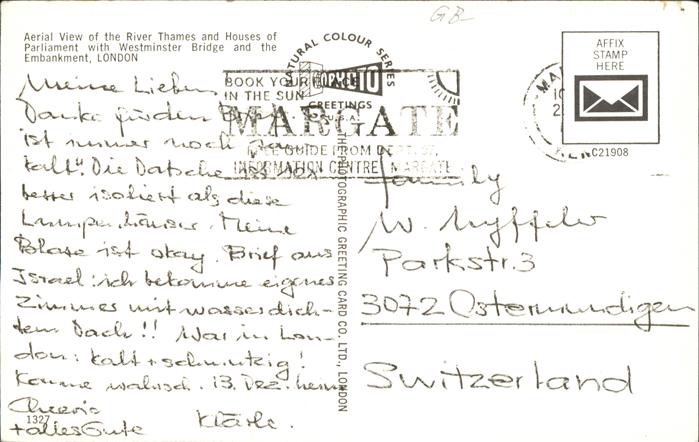 GB
Aerial View of the River Thames and Houses of
Parliament with Westminster Bridge and the
Embankment, LONDON
Meine Lieben,
Danke für den Brief. Es
ist immer noch "sau
kalt". Die Datsche ist
besser isoliert als diese
Lumpenhäuser. Meine
Blase ist okay. Brief aus
Israel: ich bekomme eigenes
Zimmer mit wasserdich-
tem Dach!! War in Lon-
don: kalt + schmutzig!
Komme wahrsch. 13. Dez. heim
Cheerio
+ alles Gute Kläric.
1327
NATURAL COLOUR SERIES
GREETINGS
U.S.A.
BOOK YOUR PLACE
IN THE SUN
MARGATE
FREE GUIDE FROM DEPT
INFORMATION CENTRE MARGATE
THE PHOTOGRAPHIC GREETING CARD CO. LTD., LONDON
AFFIX
STAMP
HERE
C21908
Family
W. Nyffeler
Parkstr. 3
3072 Ostermundigen
Switzerland